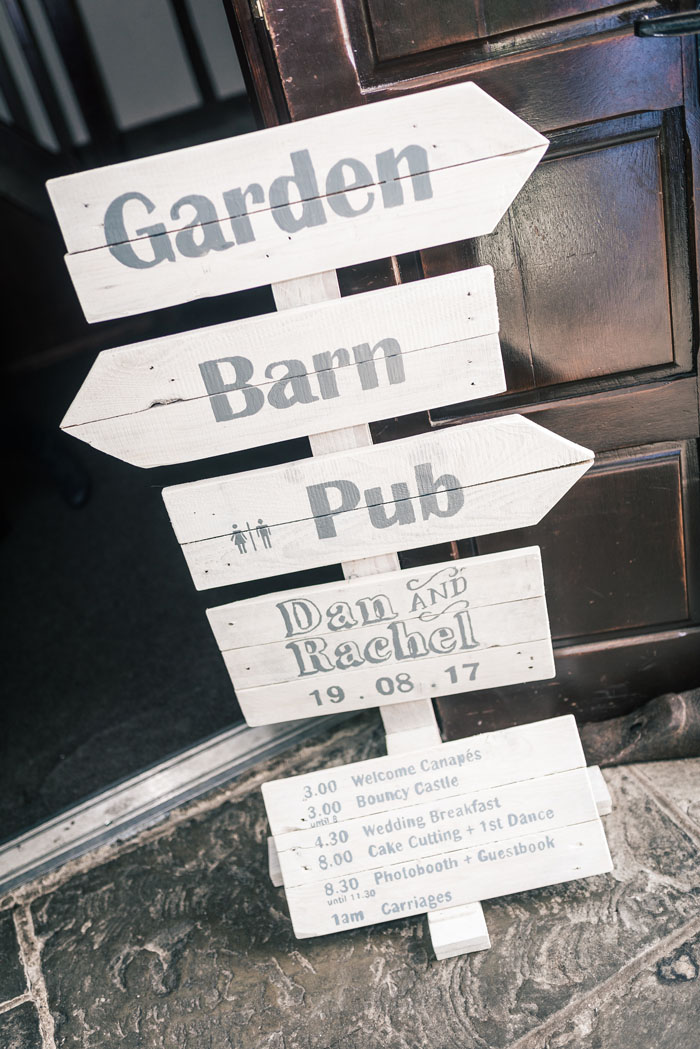 Garden
Barn
Pub
Dan AND
Rachel
19.08.17
3.00 Welcome Canapés
3.00 Bouncy Castle
until 8
4.30 Wedding Breakfast
8.00 Cake Cutting + 1st Dance
8.30 Photobooth + Guestbook
until 11.30
1am Carriages